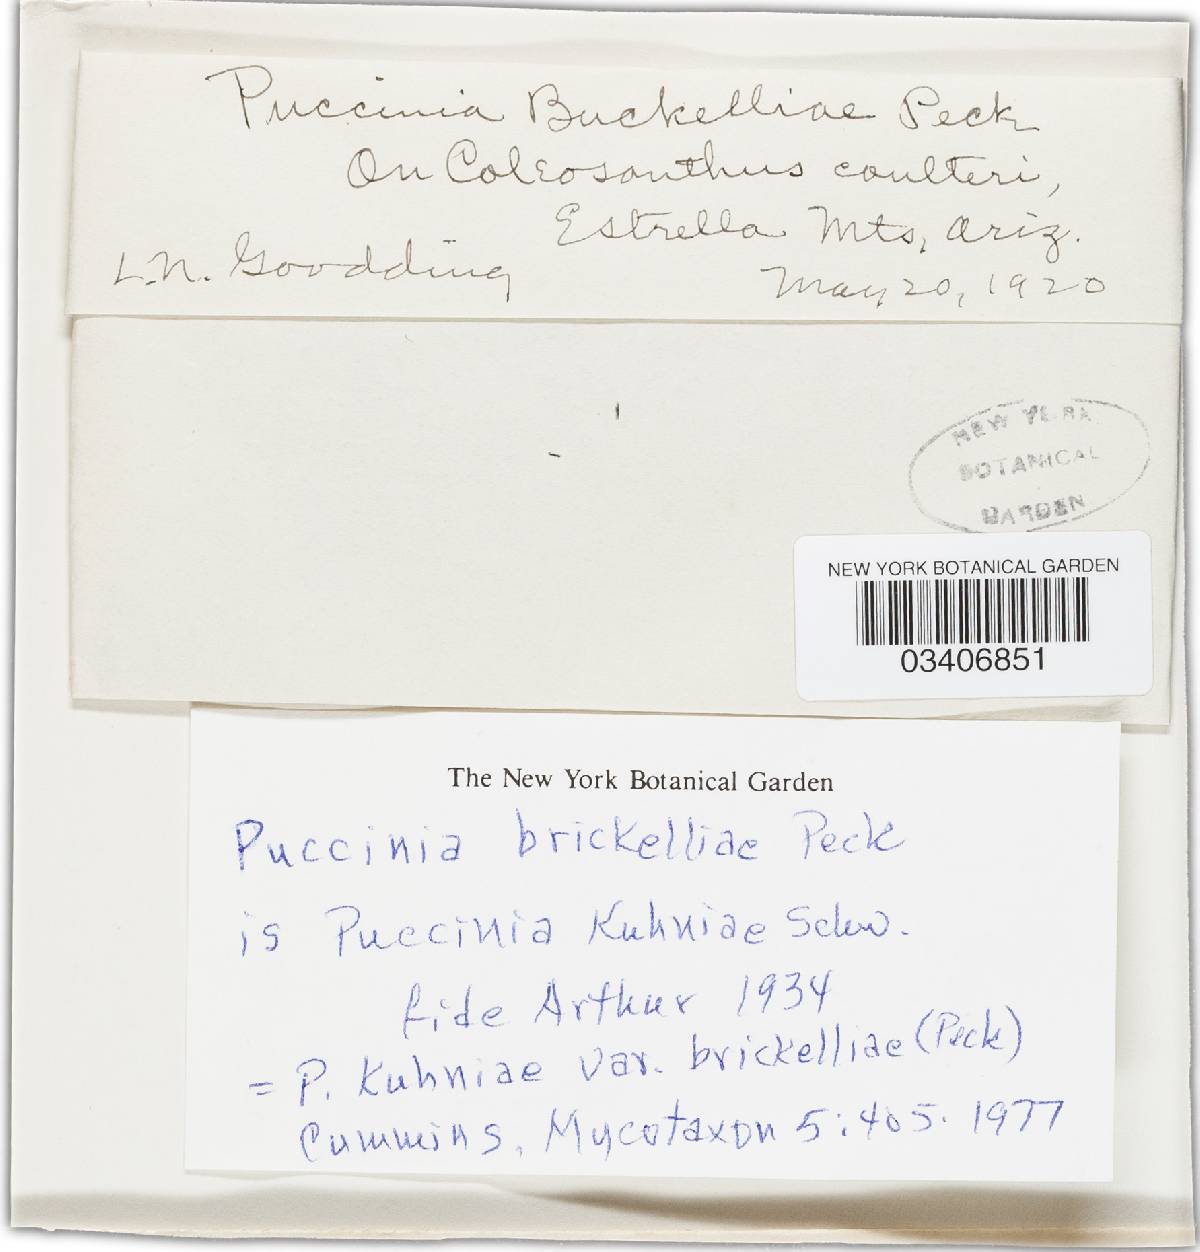 Puccinia Buckelliae Peck
On Coleosanthus coulteri,
Estrella Mts, Ariz.
L.N. Goodding May 20, 1920
NEW YORK
BOTANICAL
GARDEN
NEW YORK BOTANICAL GARDEN
03406851
The New York Botanical Garden
Puccinia brickelliae Peck
is Puccinia Kuhniae Schw.
fide Arthur 1934
= P. Kuhniae var. brickelliae (Peck)
Cummins, Mycotaxon 5:405. 1977